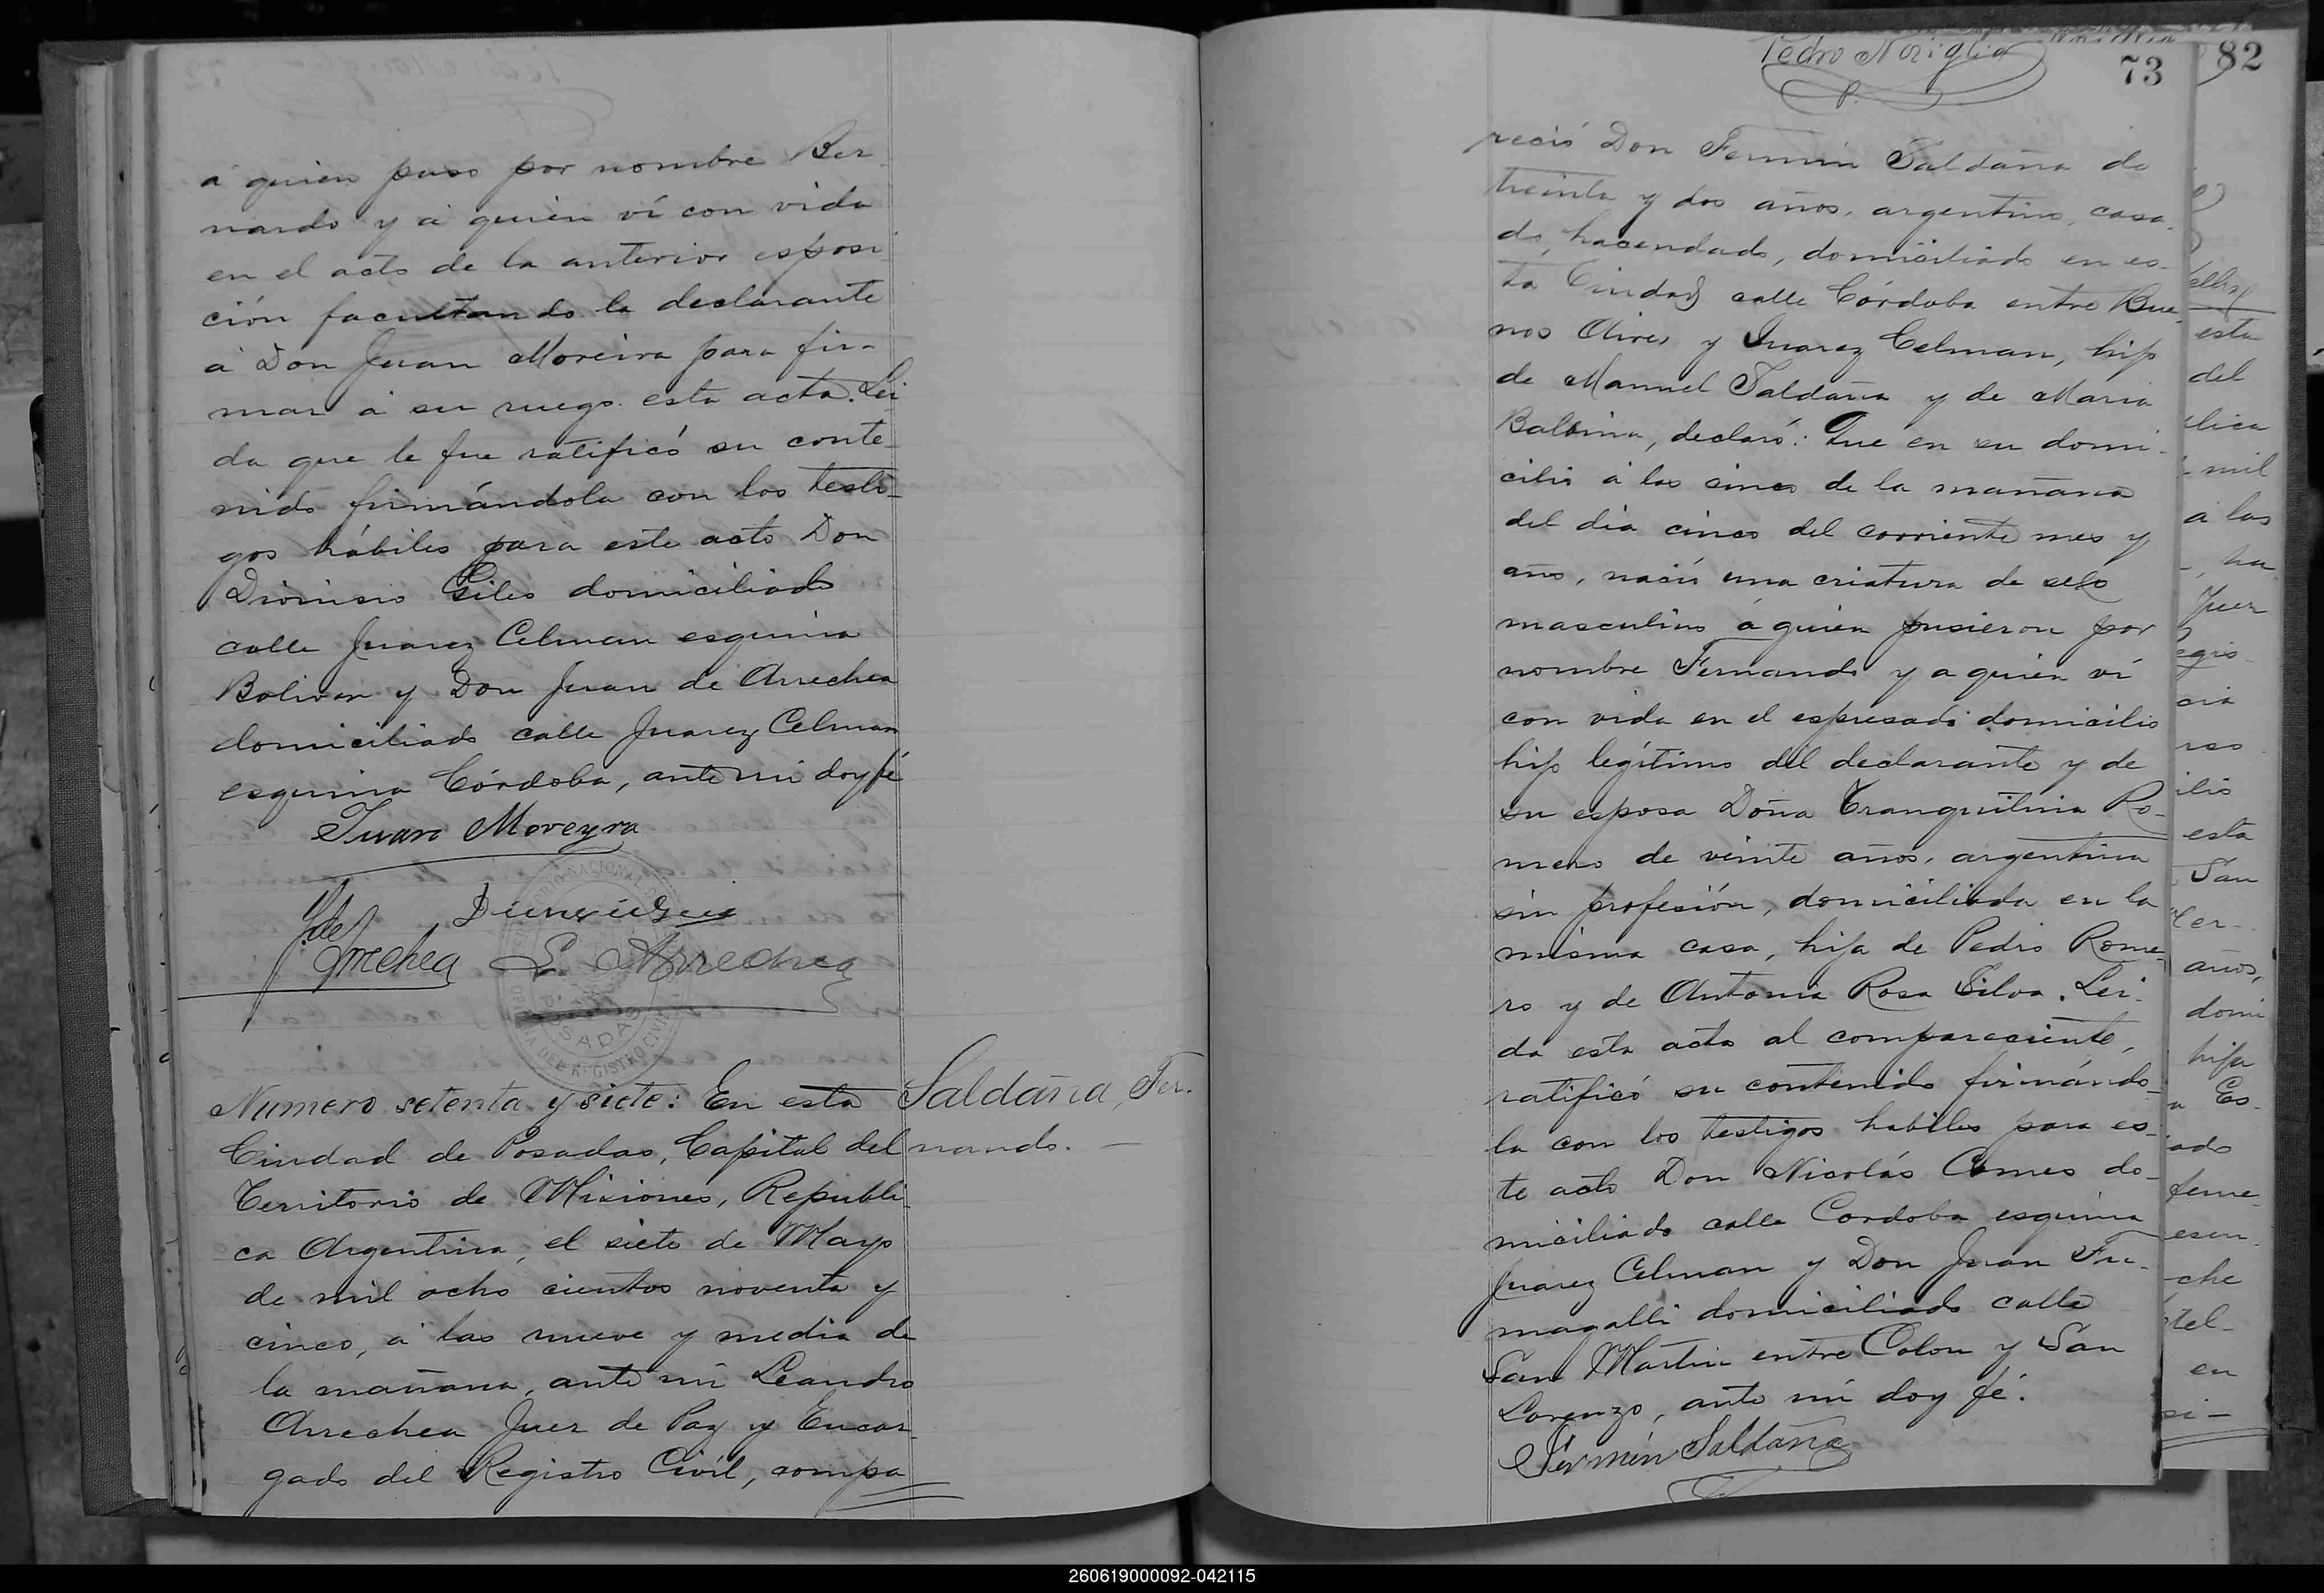 á quien puso por nombre Ber
nardo y á quien ví con vida
en el acto de la anterior esposi
ción facultando la declarante
á Don Juan Moreira para fir-
mar á su ruego esta acta. Lei
da que le fue ratificó su conte-
nido firmándola con los testi-
gos hábiles para este acto Don
Dionisio Giles domiciliado
calle Juarez Celman esquina
Bolivar y Don Juan de Arrechea
domiciliado calle Juarez Celman
esquina Córdoba, ante mi doy fé
Juan Moreyra
J. de
Arrechea L. Arrechea
POSADAS
Numero setenta y siete: En esta
Ciudad de Posadas, Capital del
Territorio de Misiones, Republi-
ca Argentina, el siete de Mayo
de mil ocho cientos noventa y
cinco, á las nueve y media de
la mañana, ante mi Leandro
Arrechea Juez de Paz y Encar-
gado del Registro Civil, compa
Saldaña, Fer-
nando. —
Pedro Noriglio
73
reció Don Fermin Saldaña de
treinta y dos años, argentino, casa-
do, hacendado, domiciliado en es-
ta Ciudad calle Córdoba entre Bue-
nos Aires y Juarez Celman, hijo
de Manuel Saldaña y de Maria
Balbina, declaró: Que en su domi-
cilio á las cinco de la mañana
del dia cinco del corriente mes y
año, nació una criatura de sexo
masculino á quien pusieron por
nombre Fernando y a quien ví
con vida en el espresado domicilio
hijo legítimo del declarante y de
su esposa Doña Tranquilina Ro-
mero de veinte años, argentina
sin profesión, domiciliada en la
misma casa, hija de Pedro Rome-
ro y de Antonia Rosa Silva. Lei-
da esta acta al compareciente,
ratificó su contenido firmándo-
la con los testigos habiles para es-
te acto Don Nicolás Comes do-
miciliado calle Cordoba esquina
Juarez Celman y Don Juan Fu-
magalli domiciliado calle
San Martin entre Colon y San
Lorenzo, ante mí doy fé.
Fermín Saldaña
82
esta
del
blica
mil
a las
Juez
egis-
cia
ilio
esta
San
años,
domi
hija
Es-
ado
feme-
che
tel-
en
260619000092-042115